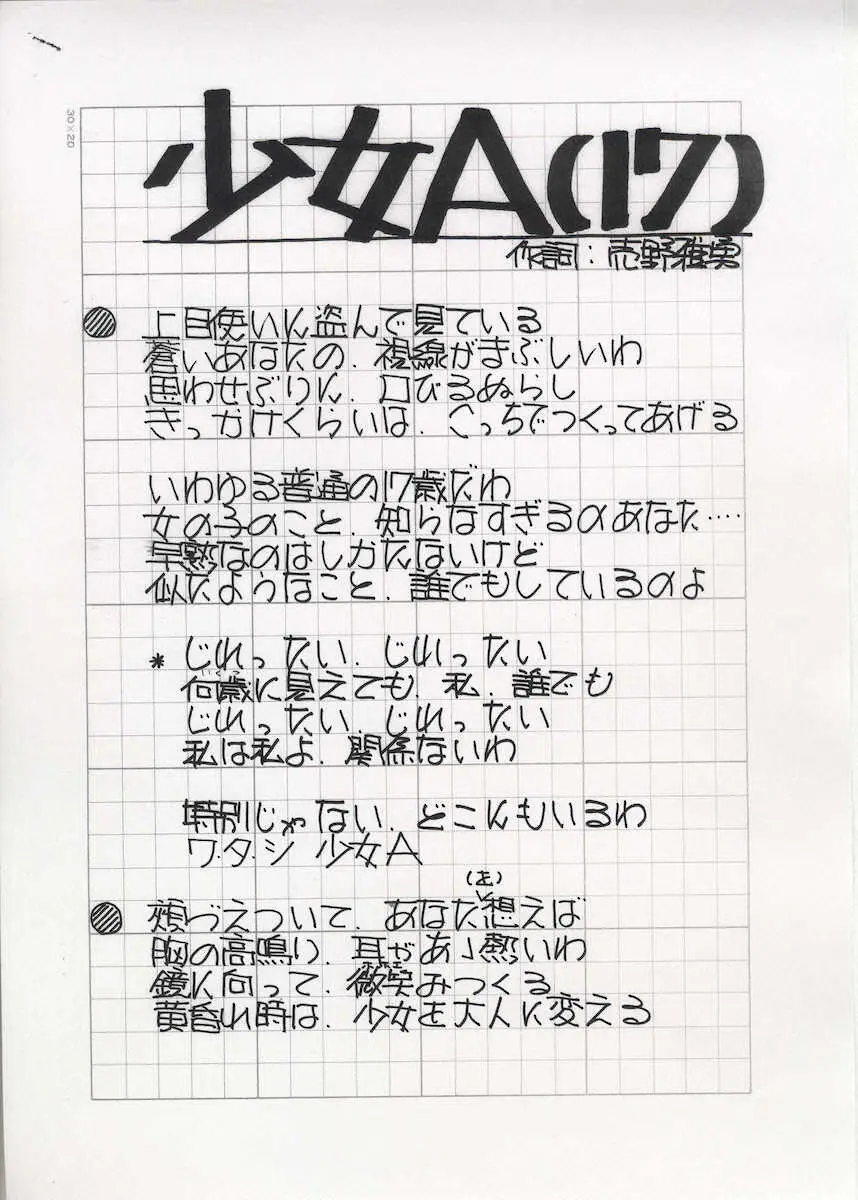 30×20
少女A(17)
作詞：売野雅勇
上目使いに盗んで見ている
蒼いあなたの、視線がまぶしいわ
思わせぶりに、口びるぬらし
きっかけくらいは、こっちでつくってあげる
いわゆる普通の17歳だわ
女の子のこと、知らなすぎるのあなた……
早熟なのはしかたないけど
似たようなこと、誰でもしているのよ
* じれったい、じれったい
いくつ
何歳に見えても、私、誰でも
じれったい、じれったい
私は私よ、関係ないわ
特別じゃない、どこにもいるわ
ワ・タ・シ 少女A
(を)
頬づえついて、あなた想えば
胸の高鳴り、耳があゝ熱いわ
ホホエ
鏡に向って、微笑みつくる
黄昏れ時は、少女を大人に変える